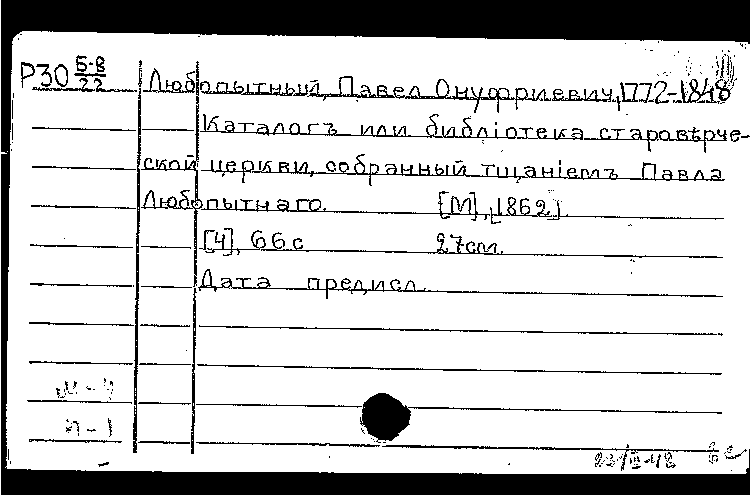 Р30 Б-8/22
Любопытный, Павел Онуфриевич, 1772-1848
Каталогъ или библіотека старовѣрче-
ской церкви, собранный тщаніемъ Павла
Любопытнаго. [М], [1862].
[4], 66 с. 27 см.
Дата предисл.
м-4
п-1
23/III-42